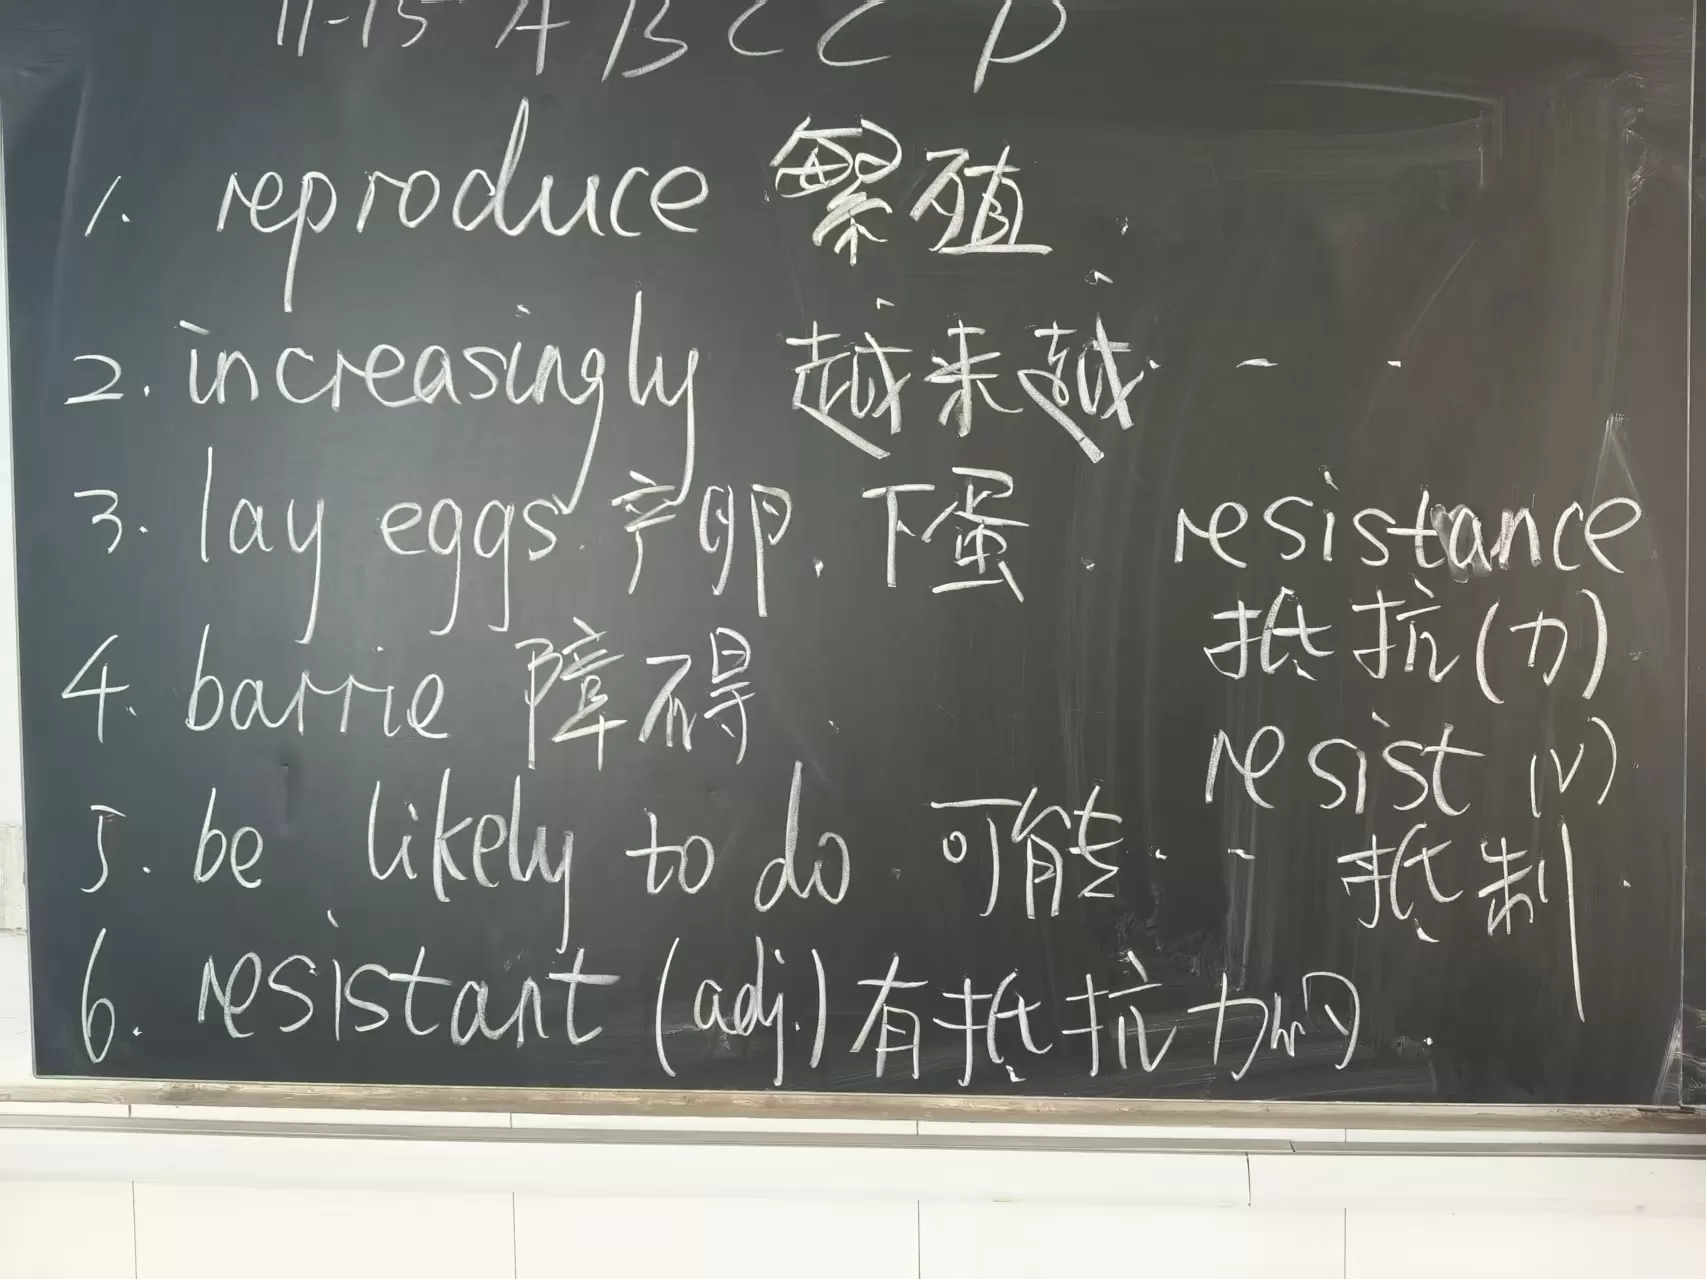 11-15 A B C C D
1. reproduce 繁殖.
2. increasingly 越来越...
3. lay eggs 产卵. 下蛋.
4. barrie 障碍.
5. be likely to do 可能...
6. resistant (adj.) 有抵抗力的.
resistance
抵抗(力)
resist (v)
抵制.